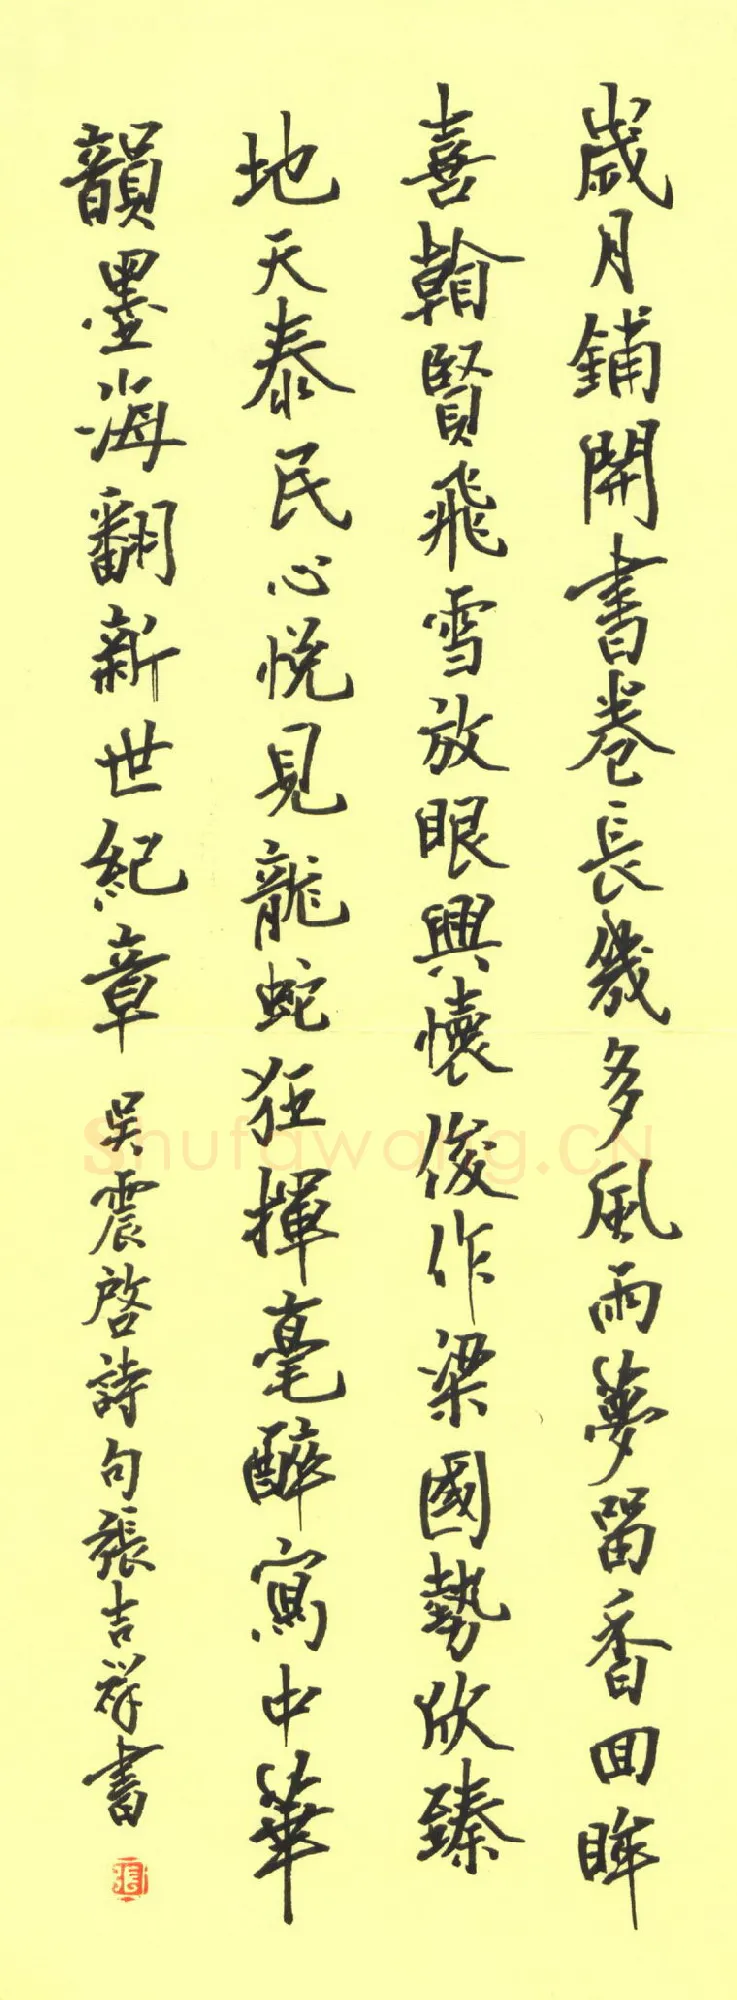 歲月鋪開書卷長幾多風雨夢留香回眸
喜翰賢飛雪放眼興懷俊作梁國勢欣臻
地天泰民心悅見龍蛇狂揮毫醉寫中華
韻墨海翻新世紀章
吳震啓詩句張吉祥書
張
Shufawang.CN